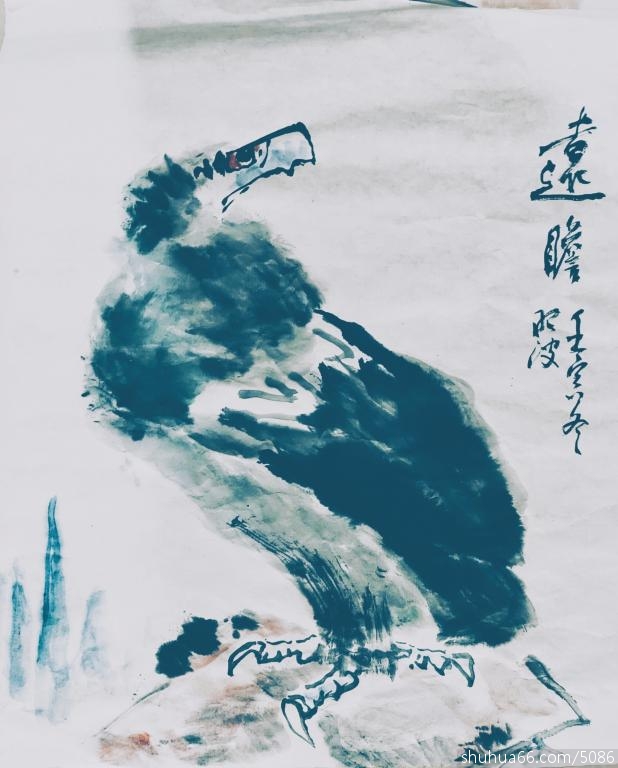 遠瞻
壬寅冬
波
shuhua66.com/5086